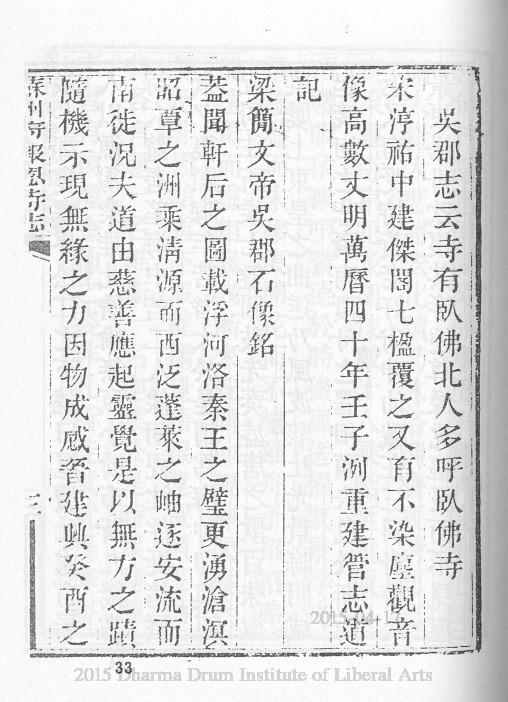 吳郡志云寺有臥佛北人多呼臥佛寺
宋淳祐中建傑閣七楹覆之又有不染塵觀音
像高數丈明萬曆四十年壬子洌重建管志道
記
梁簡文帝吳郡石像銘
蓋聞軒后之圖載浮河洛秦王之璧更湧滄溟
昭覃之洲乘淸源而西泛蓬萊之岫逐安流而
南徙況夫道由慈善應起靈覺是以無方之蹟
隨機示現無緣之力因物成感晉建興癸酉之
蘇州府報恩寺志
三
33
2015 Dharma Drum Institute of Liberal Arts